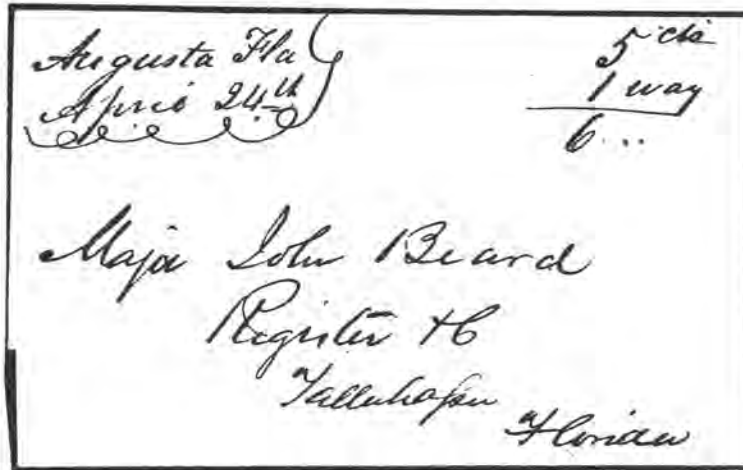 Augusta Fla
April 24th
5 cts
1 way
6...
Major John Beard
Register &C
Tallahassee
Florida